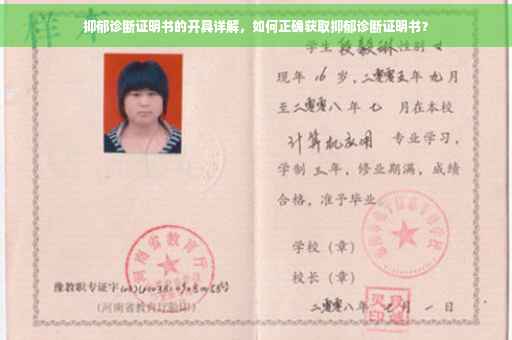 抑郁诊断证明书的开具详解，如何正确获取抑郁诊断证明书？
样本
学生 段毅琳 性别 女
现年 16 岁，二零零五年 九月
至二零零八年 七 月在本校
计算机应用 专业学习，
学制 三年，修业期满，成绩
合格，准予毕业
学校（章）
校长（章）
豫教职专证字
（河南省教育厅验印）
二零零八年 七 月 一 日
河南省教育厅